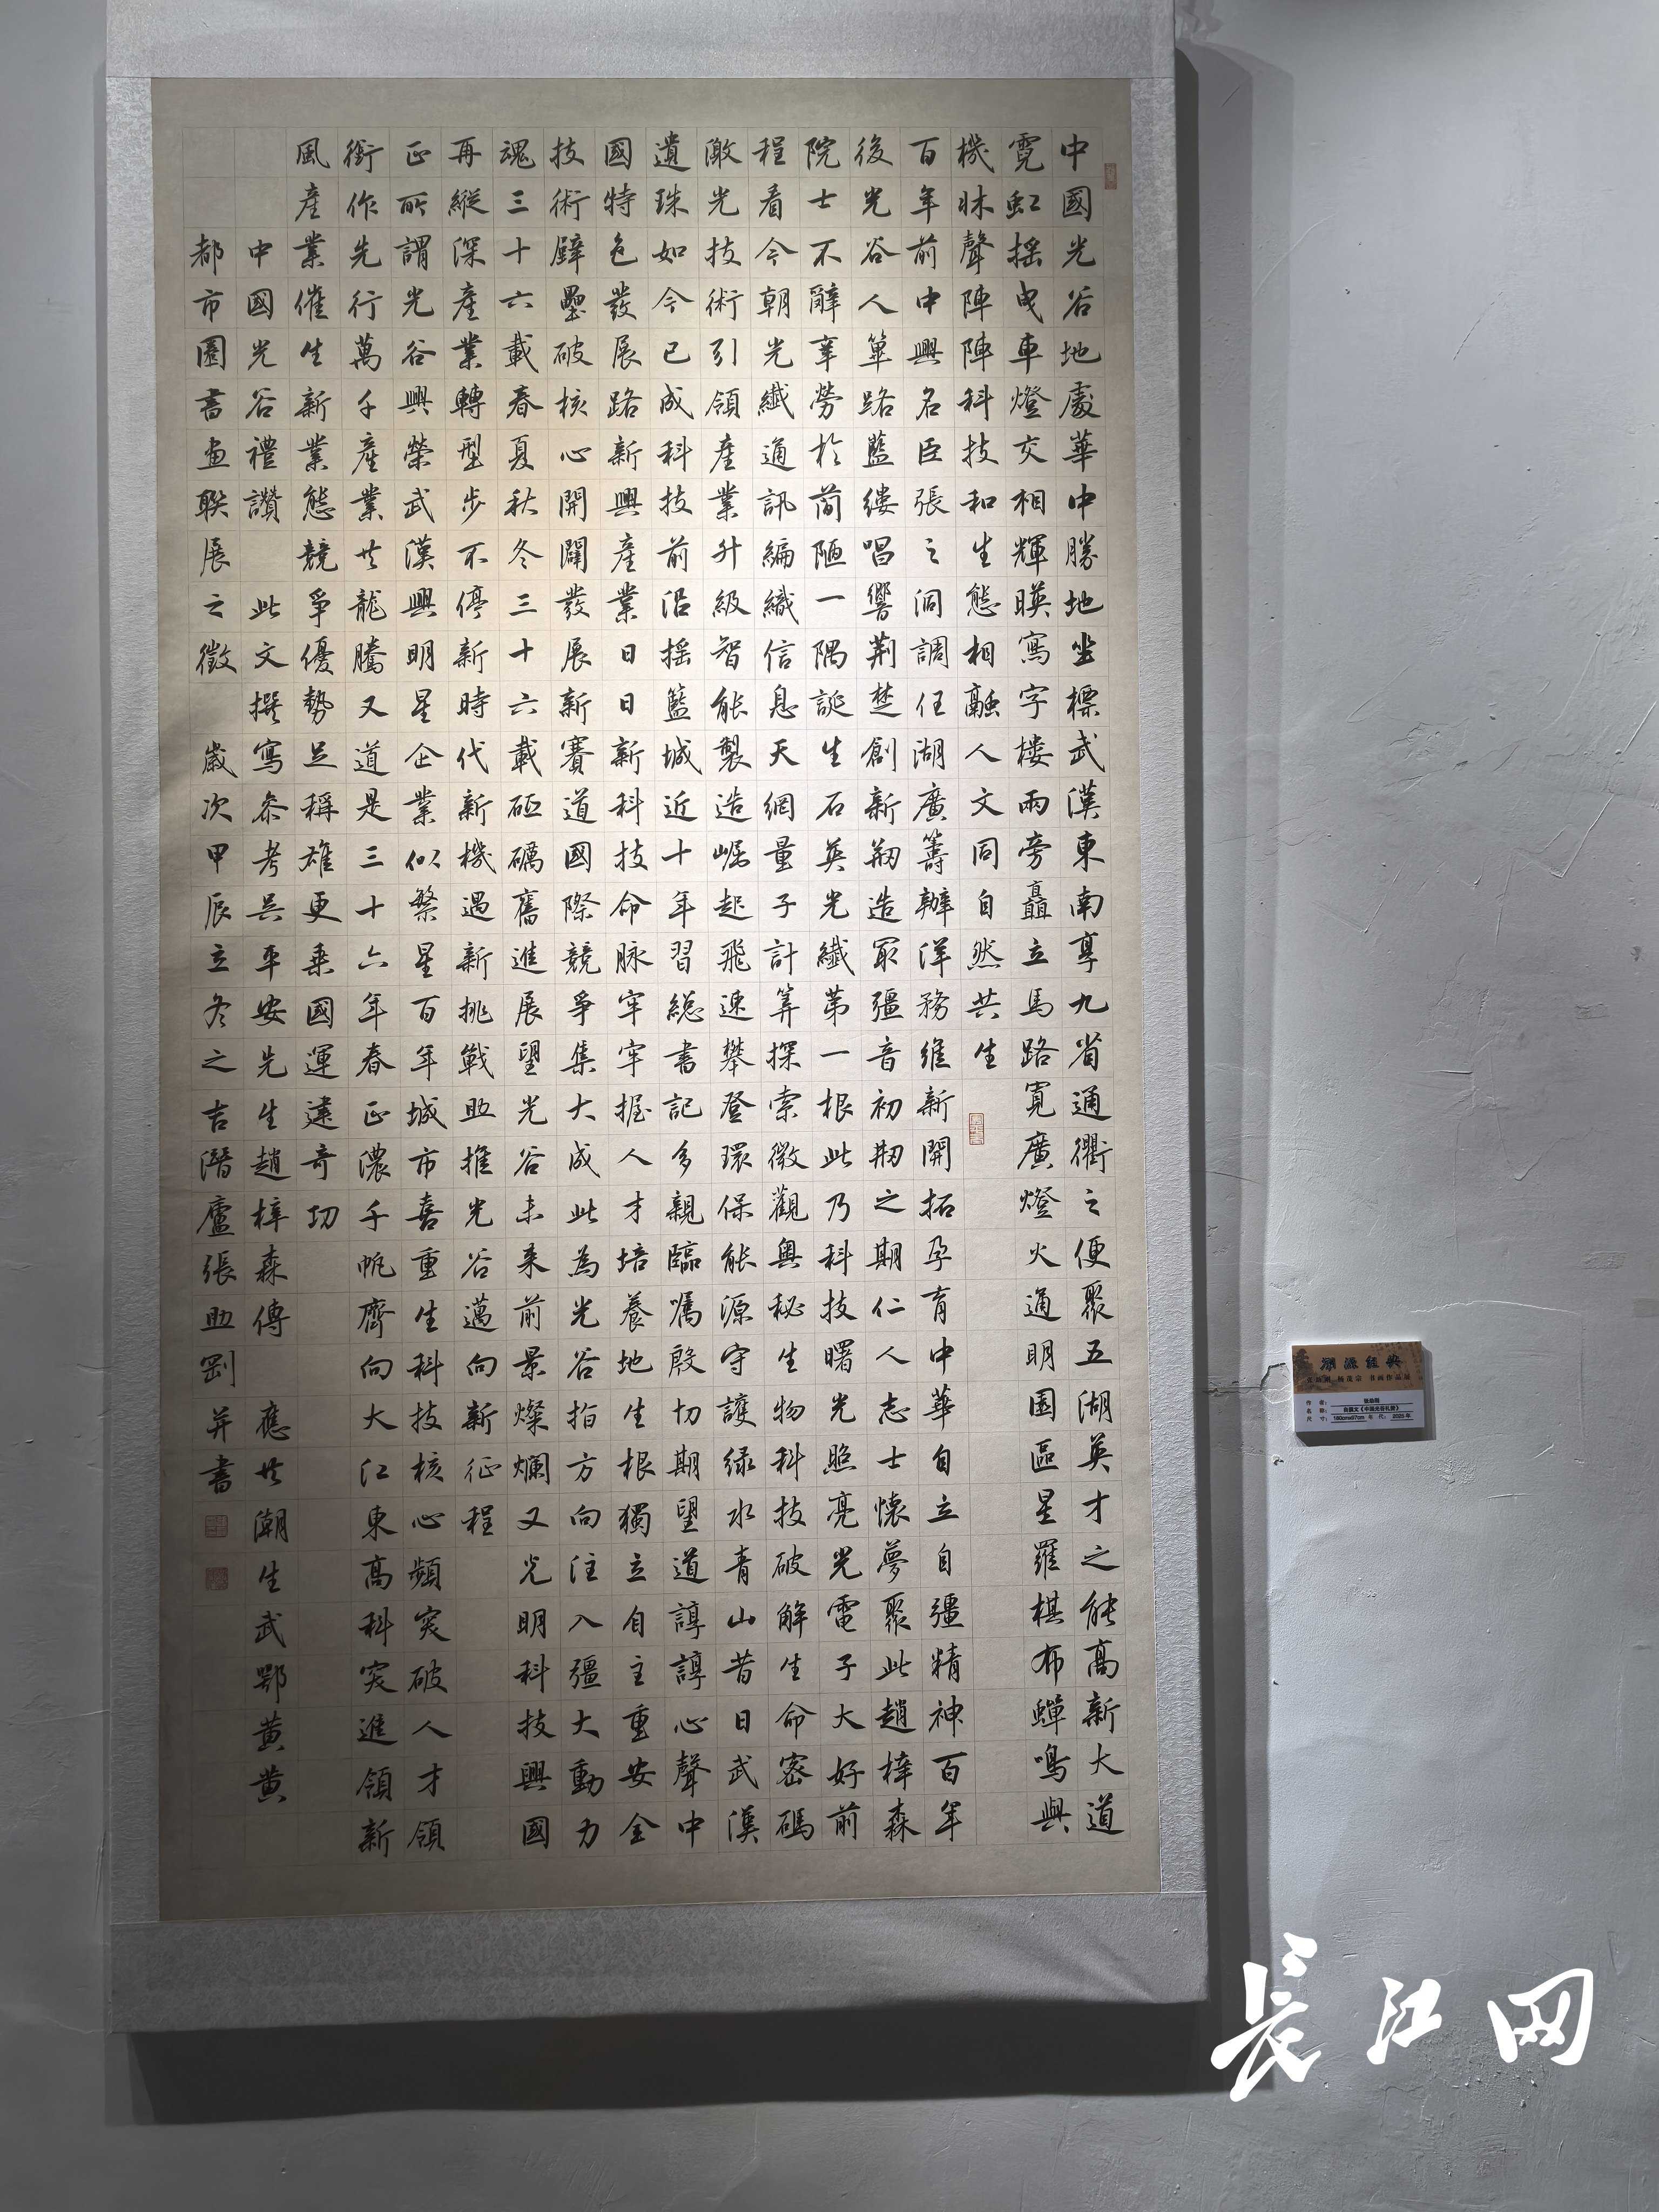 中國光谷地處華中勝地坐標武漢東南享九省通衢之便聚五湖英才之能高新大道
霓虹搖曳車燈交相輝暎寫字楼兩旁矗立馬路寬廣燈火通明園區星羅棋布蟬鳴與
機牀聲陣陣科技和生態相融人文同自然共生
百年前中興名臣張之洞調任湖廣籌辦洋務維新開拓孕育中華自立自彊精神百年
後光谷人篳路藍縷唱響荆楚創新剏造最彊音初剏之期仁人志士懷夢聚此趙梓森
院士不辭辛勞於簡陋一隅誕生石英光纖第一根此乃科技曙光照亮光電子大好前
程看今朝光纖通訊編織信息天網量子計筭探索微觀奥秘生物科技破解生命密碼
激光技術引領產業升級智能製造崛起飛速攀登環保能源守護绿水青山昔日武漢
遺珠如今已成科技前沿摇籃城近十年習総書記多親臨嘱殷切期望道諄諄心聲中
國特色發展路新興產業日日新科技命脉牢牢握人才培養地生根獨立自主重安全
技術壁壘破核心開闢發展新賽道國際競爭集大成此為光谷指方向注入彊大動力
魂三十六載春夏秋冬三十六載砥礪舊進展望光谷未来前景燦爛又光明科技興國
再縱深產業轉型步不停新時代新機遇新挑戰助推光谷邁向新征程
正所謂光谷興榮武漢興明星企業似繁星百年城市喜重生科技核心頻突破人才領
銜作先行萬千產業共龍騰又道是三十六年春正濃千帆齊向大江東高科突進領新
風產業催生新業態競爭優勢足稱雄更乘國運建奇功
中國光谷禮讚 此文撰寫叅考吴平安先生趙梓森傳 應共潮生武鄂黄黄
都市圈書画联展之徵 歲次甲辰立冬之吉潛廬張助剛并書
溯源經典
作 者: 張助剛
名 称: 自撰文《中国光谷礼赞》
尺 寸: 180cmx97cm 年 代: 2025年
長江网